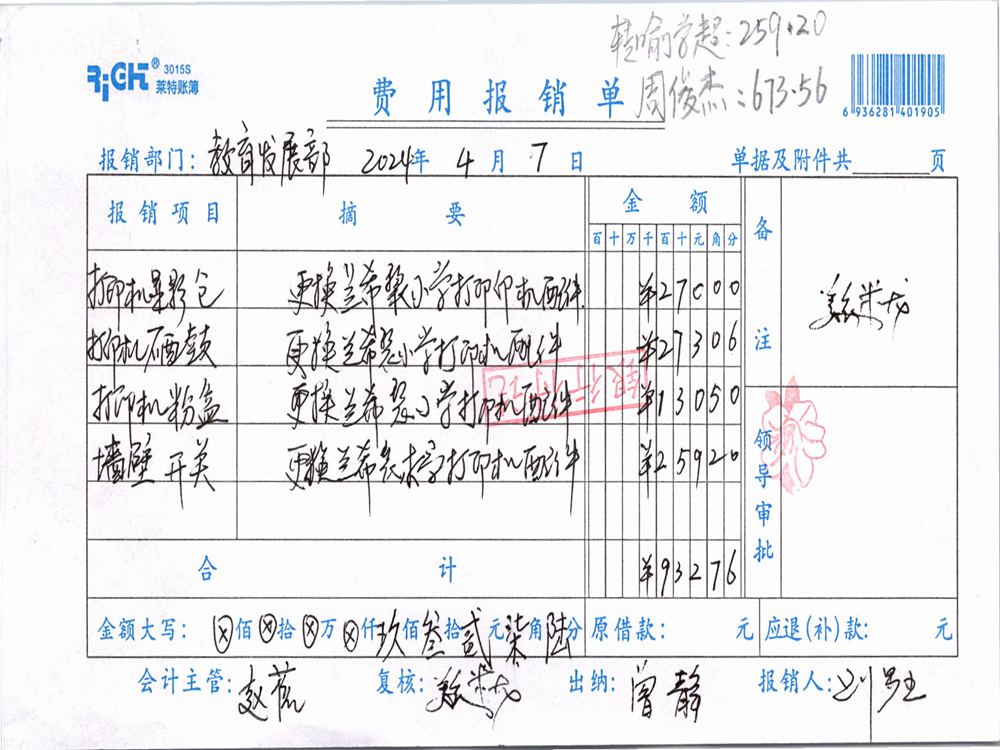 转喻学超:259.20
RiGHT® 3015S 莱特账簿
费用报销单
周俊杰:673.56
6 936281 401905
报销部门: 教育发展部 2024年 4月 7日 单据及附件共 页
报销项目 摘要 金额 备注
百十万千百十元角分
打印机显影仓 更换兰希黎小学打印机配件 ¥27000
打印机硒鼓 更换兰希黎小学打印机配件 ¥27306
打印机粉盒 更换兰希黎小学打印机配件 ¥13050
墙壁开关 更换兰希黎小学打印机配件 ¥25920
银行付讫
领导审批
合计 ¥93276
金额大写: ⊗佰⊗拾⊗万⊗仟玖佰叁拾贰元柒角陆分 原借款: 元 应退(补)款: 元
会计主管: 复核: 出纳: 曾静 报销人: